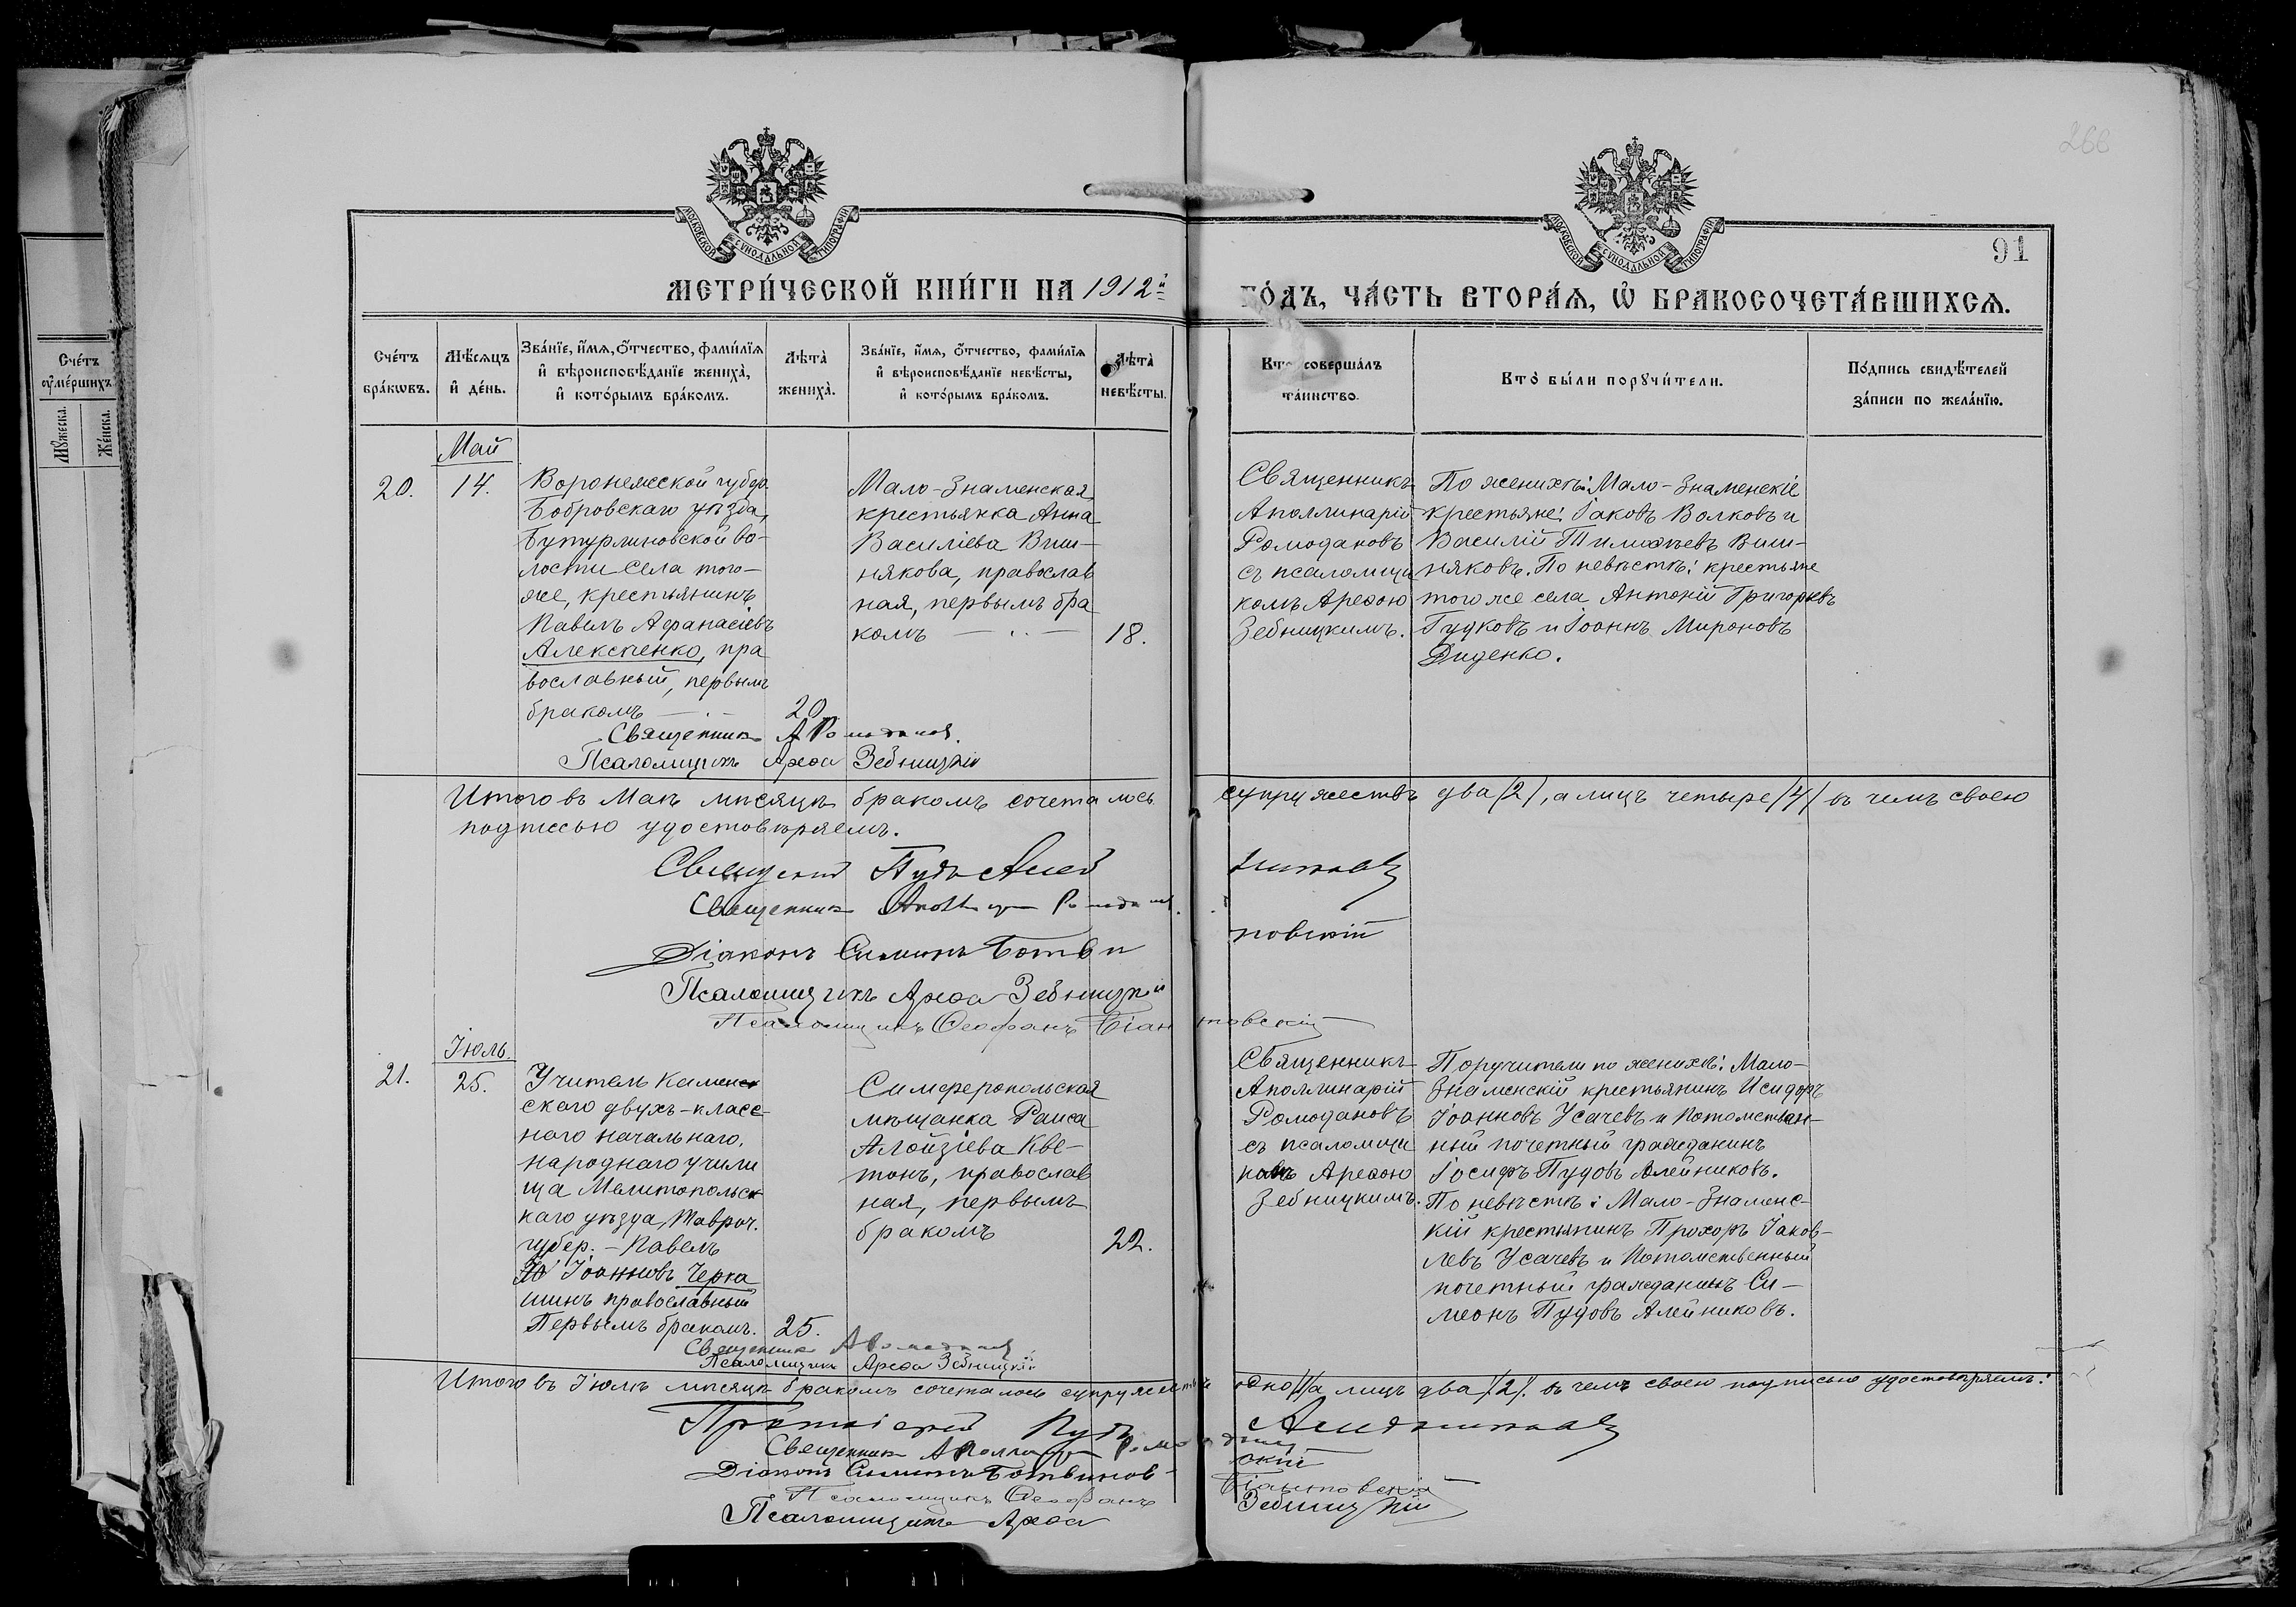 266
МОСКОВСКОЙ СѴНОДАЛЬНОЙ ТИПОГРАФІИ
МОСКОВСКОЙ СѴНОДАЛЬНОЙ ТИПОГРАФІИ
91
МЕТРИ́ЧЕСКОЙ КНИ́ГИ НА 1912й
ГО́ДЪ, ЧА́СТЬ ВТОРА́Ѧ, Ѽ БРАКОСОЧЕТА́ВШИХСѦ.
Сче́тъ
ᲂу҆ме́ршихъ
Мꙋжеска.
Же́нска.
Сче́тъ
бра́кѡвъ.
Мѣ́сѧцъ
и҆ де́нь.
Зва́нїе, и҆́мѧ, ѻ҆́тчество, фами́лїѧ
и҆ вѣроисповѣ́данїе жениха̀,
и҆ кото́рымъ бра́комъ.
Лѣ́та̀
жениха̀.
Зва́нїе, и҆́мѧ, ѻ҆́тчество, фами́лїѧ
и҆ вѣроисповѣ́данїе невѣ́сты,
и҆ кото́рымъ бра́комъ.
Лѣ́та̀
невѣ́сты.
Кто̀ соверша́лъ
та́инство.
Кто̀ бы́ли порꙋчи́тели.
По́дпись свидѣ́телей
за́писи по жела́нїю.
Май
20.
14.
Воронежской губер.
Бобровскаго уѣзда,
Бутурлиновской во-
лости села того-
же, крестьянинъ
Павелъ Афанасіевъ
Алексѣенко, пра
вославный, первымъ
бракомъ
20
Мало-Знаменская
крестьянка Анна
Василіева Виш-
някова, православ
ная, первымъ бра
комъ
18.
Священникъ
Аполлинарій
Ромодановъ
съ псаломщи
комъ Арефою
Зебницкимъ.
По женихѣ: Мало-Знаменскіе
крестьяне: Іаковъ Волковъ и
Василій Тимофѣевъ Виш-
няковъ. По невѣстѣ: крестьяне
того же села Антоній Григорьевъ
Гудковъ и Іоаннъ Мироновъ
Диденко.
Священникъ А Ромодановъ.
Псаломщикъ Арефа Зебницкій
Итого въ Маѣ мѣсяцѣ бракомъ сочеталось супружествъ два /2/, а лицъ четыре /4/ въ чемъ своею
подписью удостовѣряемъ.
Священникъ Пудъ Алейниковъ
Священникъ Аполлинарій Ромодановъ.
Діаконъ Симеонъ Ботвиновскій
Псаломщикъ Арефа Зебницкій
Псаломщикъ Феофанъ Біантовскій
Іюль.
21.
25.
Учитель Каменс
скаго двухъ-класс-
наго начальнаго,
народнаго учили
ща Мелитопольск
каго уѣзда, Таврич.
губер. - Павелъ
Іоанновъ Черка
шинъ православный
Первымъ бракомъ.
25.
Симферопольская
мѣщанка Раиса
Алойзіева Кве-
тонъ, православ
ная, первымъ
бракомъ
22.
Священникъ
Аполлинарій
Ромодановъ
съ псаломщи
комъ Арефою
Зебницкимъ.
Поручители по женихѣ: Мало-
Знаменскій крестьянинъ Исидоръ
Іоанновъ Усачевъ и Потомствен-
ный почетный гражданинъ
Іосифъ Пудовъ Алейниковъ.
По невѣстѣ: Мало-Знаменс-
кій крестьянинъ Прохоръ Іаков-
левъ Усачевъ и Потомственный
почетный гражданинъ Си-
меонъ Пудовъ Алейниковъ.
Священникъ А Ромодановъ
Псаломщикъ Арефа Зебницкій
Итого въ Іюлѣ мѣсяцѣ бракомъ сочеталось супружествъ одно /1/ а лицъ два /2/. въ чемъ своею подписью удостовѣряемъ:
Протоіерей Пудъ Алейниковъ
Священникъ Аполлинарій Ромодановъ
Діаконъ Симеонъ Ботвиновскій
Псаломщикъ Феофанъ Біантовскій
Псаломщикъ Арефа Зебницкій